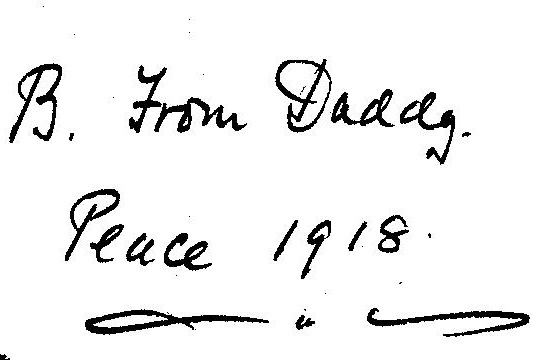 B. From Daddy.
Peace 1918.